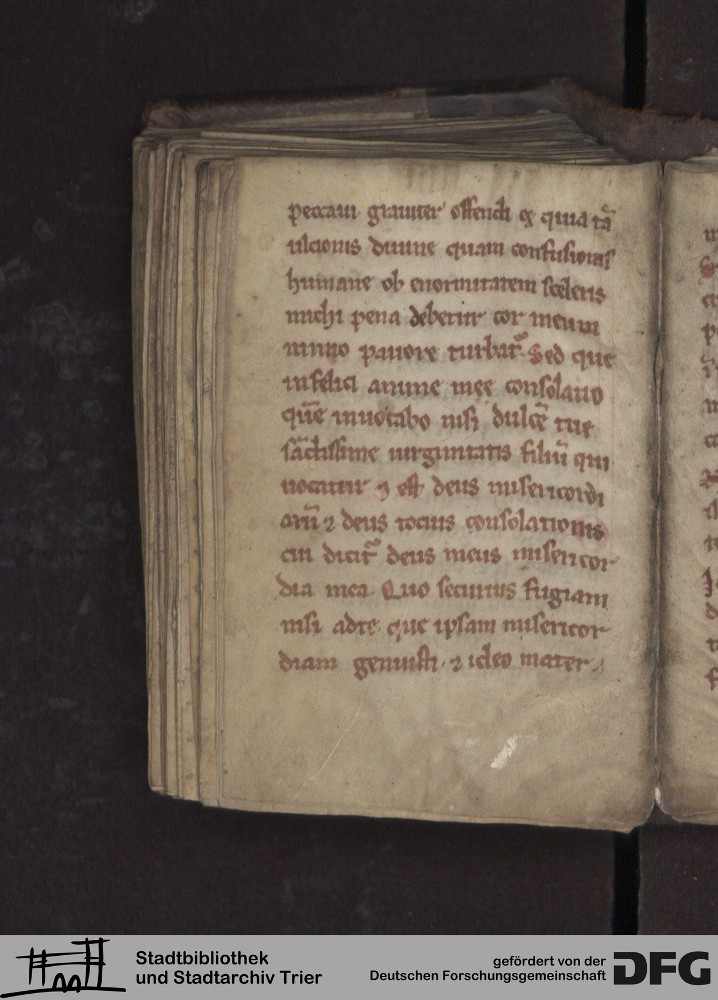 peccaui grauiter offendi ⁊ quia tā
ulcionis diuine quam confusionis
humane ob enormitatem sceleris
michi pena debetur cor meum
nimio pauore turbat᷒. Sed que
infelici anime mee consolatio
quē inuocabo nisi dulcē tue
sāctissime uirginitatis filiū qui
uocatur ⁊ est deus misericordi
arū ⁊ deus tocius consolationis
cui dicit᷒ deus meus misericor
dia mea. Quo securius fugiam
nisi adte. que ipsam misericor
diam genuisti. ⁊ ideo mater
Stadtbibliothek
und Stadtarchiv Trier
gefördert von der
Deutschen Forschungsgemeinschaft
DFG